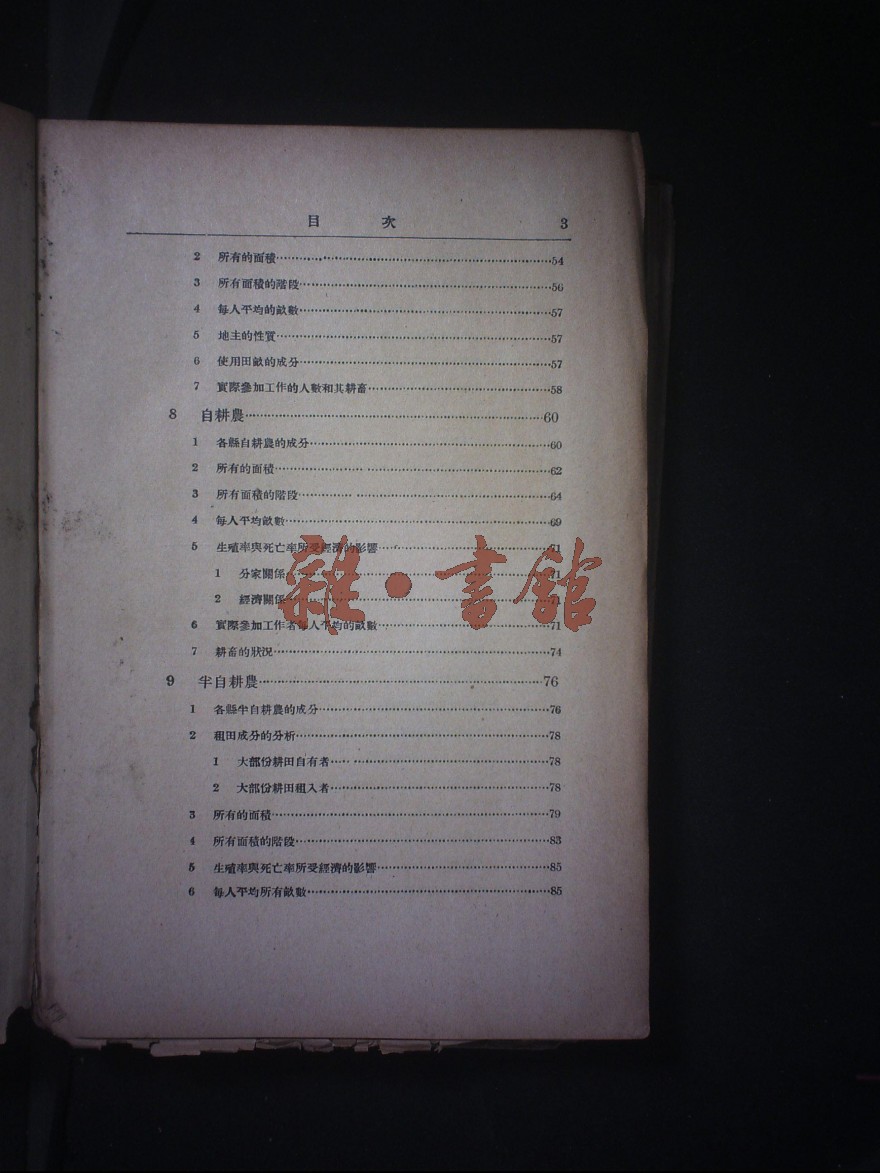 目 次 3
2 所有的面積……54
3 所有面積的階段……56
4 每人平均的畝數……57
5 地主的性質……57
6 使用田畝的成分……57
7 實際參加工作的人數和其耕畜……58
8 自耕農……60
1 各縣自耕農的成分……60
2 所有的面積……62
3 所有面積的階段……64
4 每人平均畝數……69
5 生殖率與死亡率所受經濟的影響……71
1 分家關係……71
2 經濟關係……71
6 實際參加工作者每人平均的畝數……71
7 耕畜的狀況……74
9 半自耕農……76
1 各縣半自耕農的成分……76
2 租田成分的分析……78
1 大部份耕田自有者……78
2 大部份耕田租入者……78
3 所有的面積……79
4 所有面積的階段……83
5 生殖率與死亡率所受經濟的影響……85
6 每人平均所有畝數……85
雜·書館